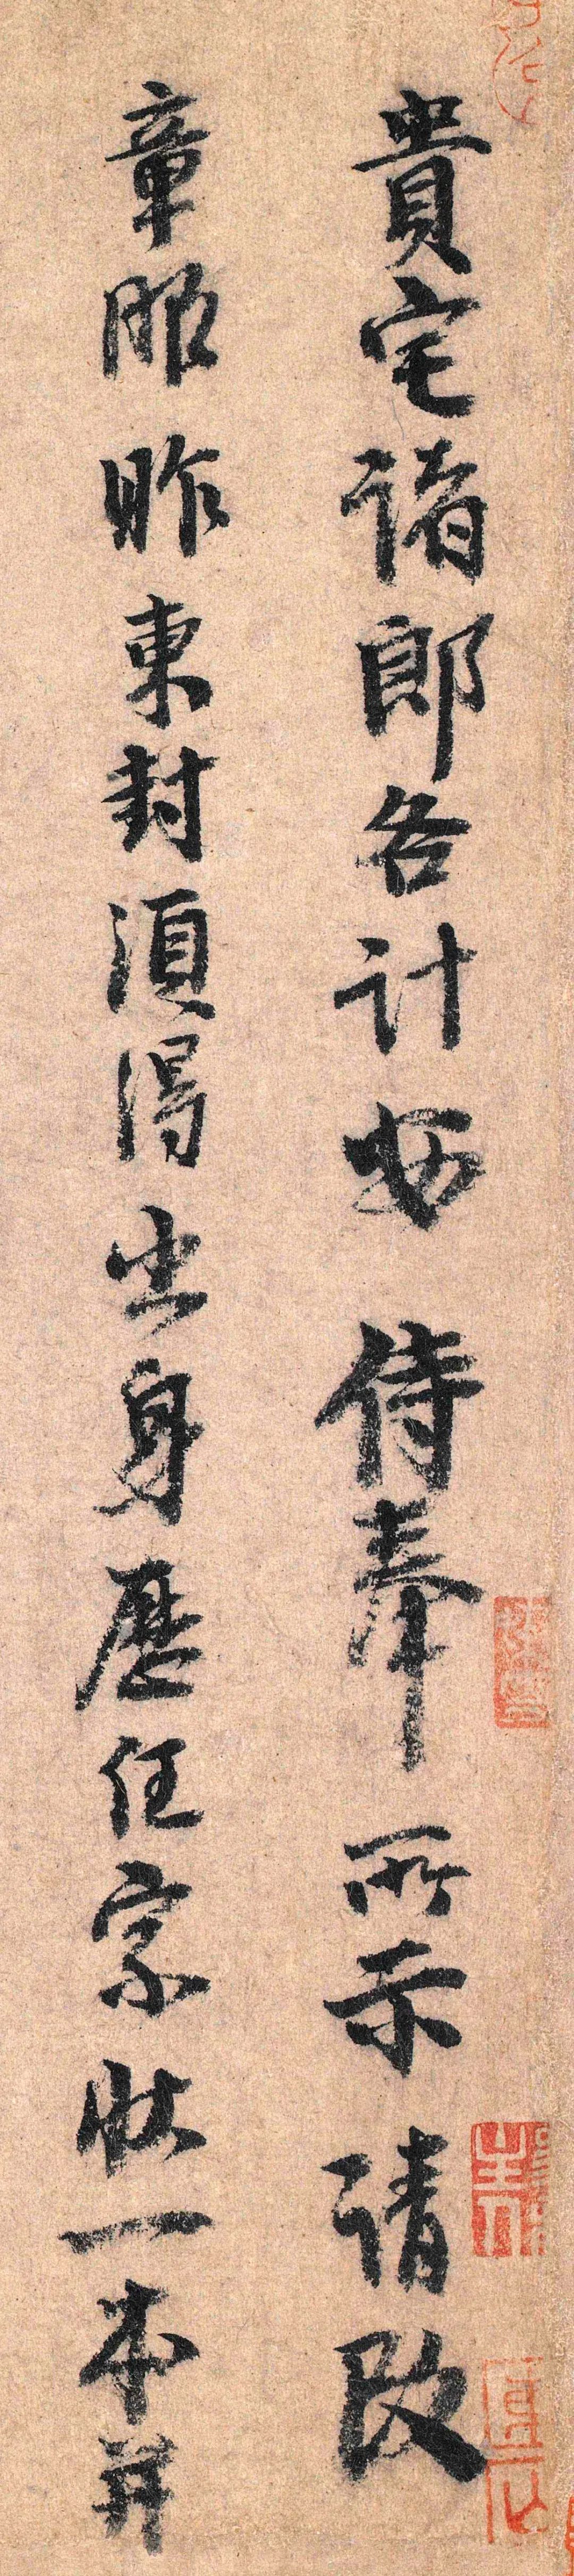 貴宅諸郎各計安 侍奉 所示 請改
章服昨東封須得出身歷任家狀一本并